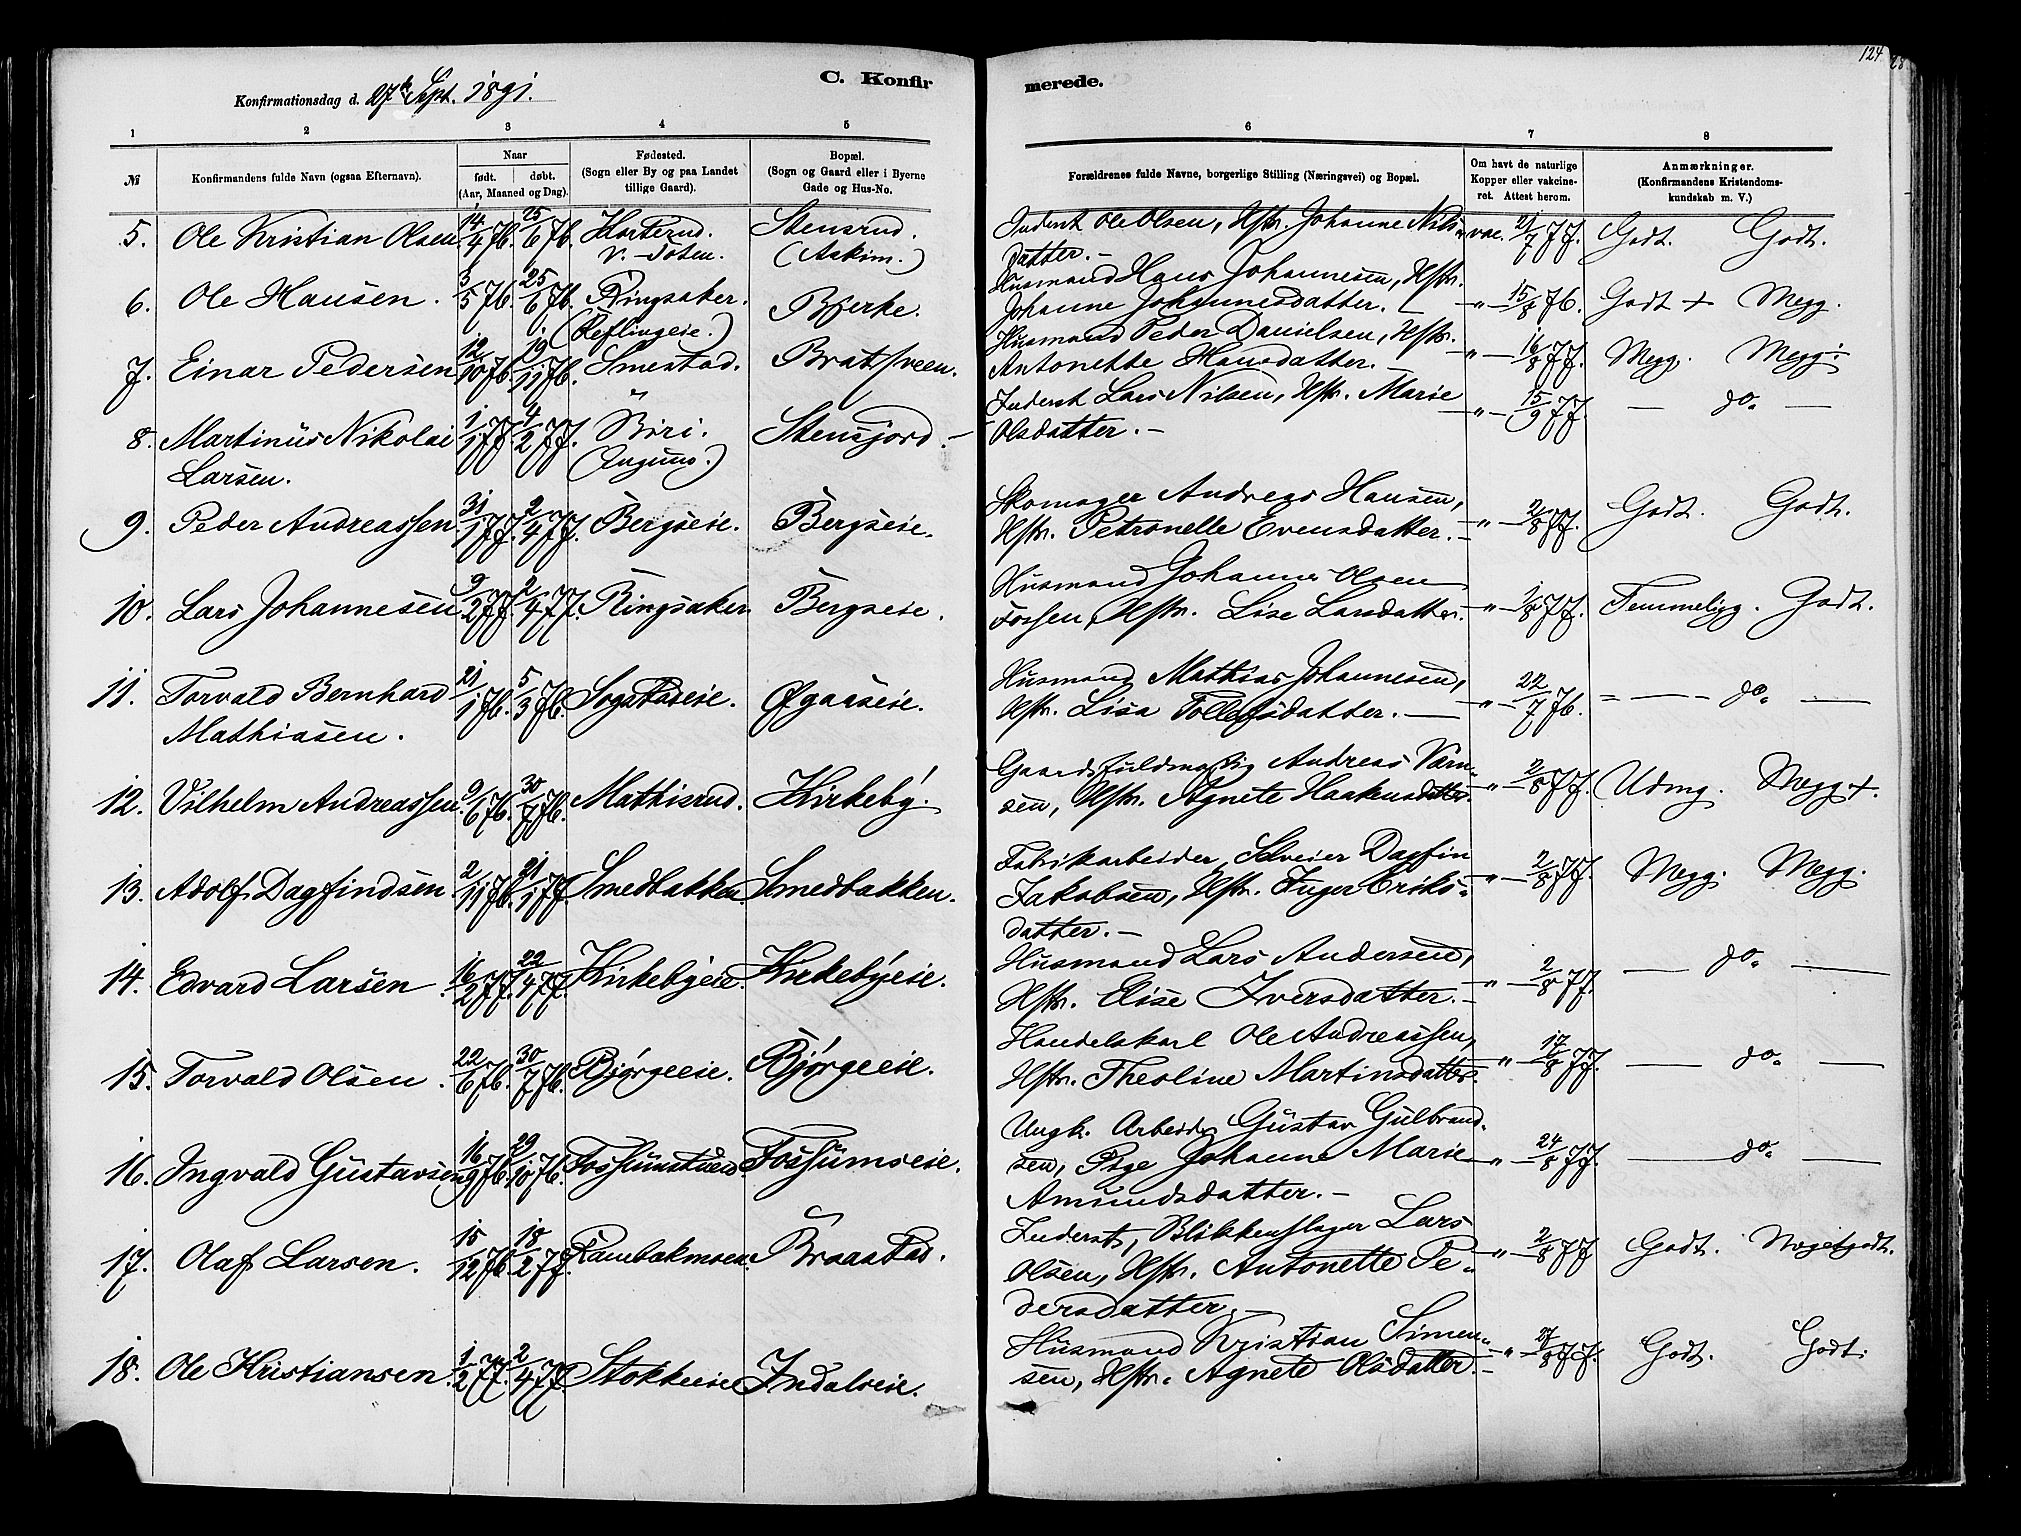 124
C. Konfir
merede.
Konfirmationsdag d. 27de Sept. 1891.
1 2 3 4 5 6 7 8
№ Konfirmandens fulde Navn (ogsaa Efternavn). Naar født. døbt. (Aar, Maaned og Dag). Fødested. (Sogn eller By og paa Landet tillige Gaard). Bopæl. (Sogn og Gaard eller i Byerne Gade og Hus-No. Forældrenes fulde Navne, borgerlige Stilling (Næringsvei) og Bopæl. Om havt de naturlige Kopper eller vakcineret. Attest herom. Anmærkninger. (Konfirmandens Kristendomskundskab m. V.)
5. Ole Kristian Olsen 14/4 76. 25/6 76. V.-Toten. Stensrud. (Askim.) Inderst Ole Olsen, Hstr. Johanne Nils-
datter.- vac. 21/7 77. Godt. Godt.
6. Ole Hansen. 3/5 76. 25/6 76. Ringsaker. Bjerke. Husmand Hans Johannesen, Hstr.
Johanne Johannesdatter. „ 15/8 76. Godt + Megg.
7. Einar Pedersen 12/10 76. 19/11 76. Smestad. Bratsveen. Husmand Peder Danielsen, Hstr.
Antonette Hansdatter. „ 16/8 77. Megg. Megg.
8. Martinus Nikolai 1/1 77. 4/2 77. Biri. Stensjord. Inderst Lars Nilsen, Hstr. Marie
Larsen. Olsdatter.- „ 15/9 77. — do. —
9. Peder Andreassen 31/1 77. 2/4 77. Bergseie. Bergseie. Skomager Andreas Hansen,
Hstr. Petronelle Evensdatter.- „ 2/8 77. Godt. Godt.
10. Lars Johannesen 9/2 77. 2/4 77. Ringsaker Bergseie. Husmand Johannes Olsen
Fossen, Hstr. Lise Larsdatter. „ 1/8 77. Temmeligg. Godt.
11. Torvald Bernhard 21/1 76. 5/3 76. Sogstadeie. Øgaaseie. Husmand Mathias Johannesen,
Mathiasen. Hstr. Lisa Tollefsdatter. — „ 22/7 76. — do. —
12. Vilhelm Andreassen 9/6 76. 30/7 76. Mathisrud. Kirkeby. Gaardsfuldmægtig Andreas
Hstr. Agnete Haakensdatter „ 2/8 77. Udmg. Megg+.
13. Adolf Dagfindsen 2/11 76. 21/1 77 Smedbakken Smedbakken. Fabrikarbeider, Selveier Dagfin
Jakobsen, Hstr. Inger Eriks-
datter.- „ 2/8 77. Megg. Megg.
14. Edvard Larsen. 16/2 77. 22/4 77. Kirkebyeie. Kirkebyeie. Husmand Lars Andersen,
Hstr. Elise Iversdatter.- „ 2/8 77. — do. —
15. Torvald Olsen. 22/6 76. 30/7 76. Bjørgeeie. Bjørgeeie. Handelskarl Ole Andreassen,
Hstr. Theoline Martinsdatter. „ 17/8 77. — do. —
16. Ingvald Gustavsen 16/9 76. 29/10 76. Fossumseie. Ungk. Arbeider Gustav Gulbrand-
sen, Pige Johanne Marie
Amundsdatter.- „ 24/8 77. — do. —
17. Olaf Larsen. 15/12 76. 18/2 77. Rambækmoen. Braastad. Inderst, Blikkenslager Lars
Olsen, Hstr. Antonette Pe-
dersdatter.- „ 2/8 77 Godt. Megetgodt.
18. Ole Kristiansen. 1/2 77. 2/4 77 Stokkeeie Indalseie. Husmand Kristian Simen-
sen, Hstr. Agnete Olsdatter.- „ 27/8 77. Godt. Godt.